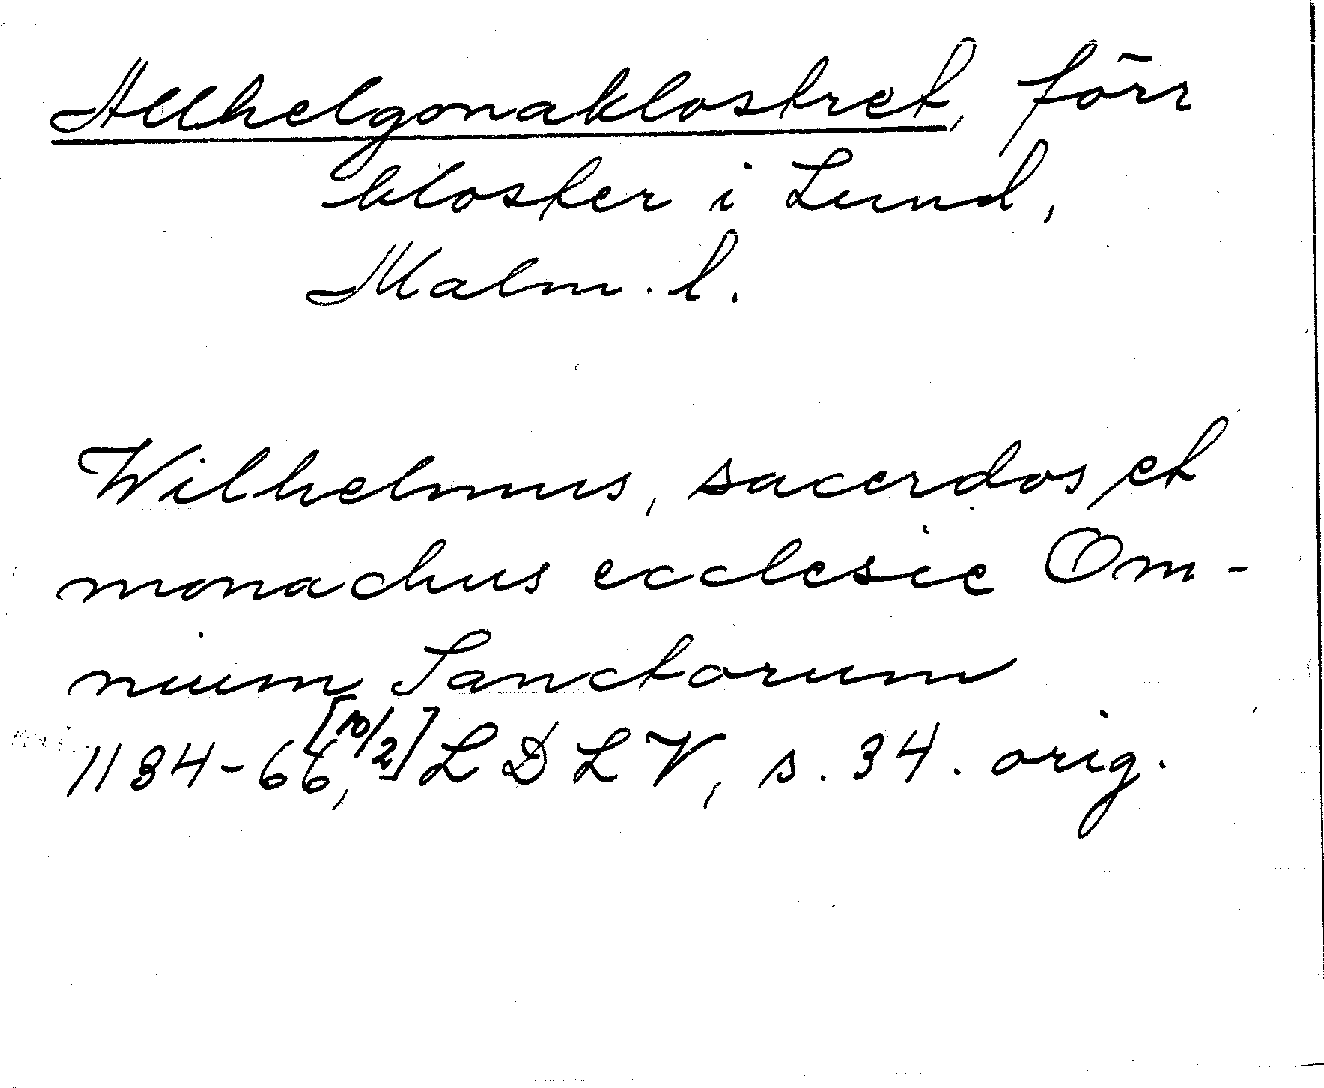 Allhelgonaklostret, förr
kloster i Lund,
Malm. l.
Wilhelmus, sacerdos et
monachus ecclesie Om-
nium Sanctorum
1134-66, [10/2] L D L V, s. 34. orig.